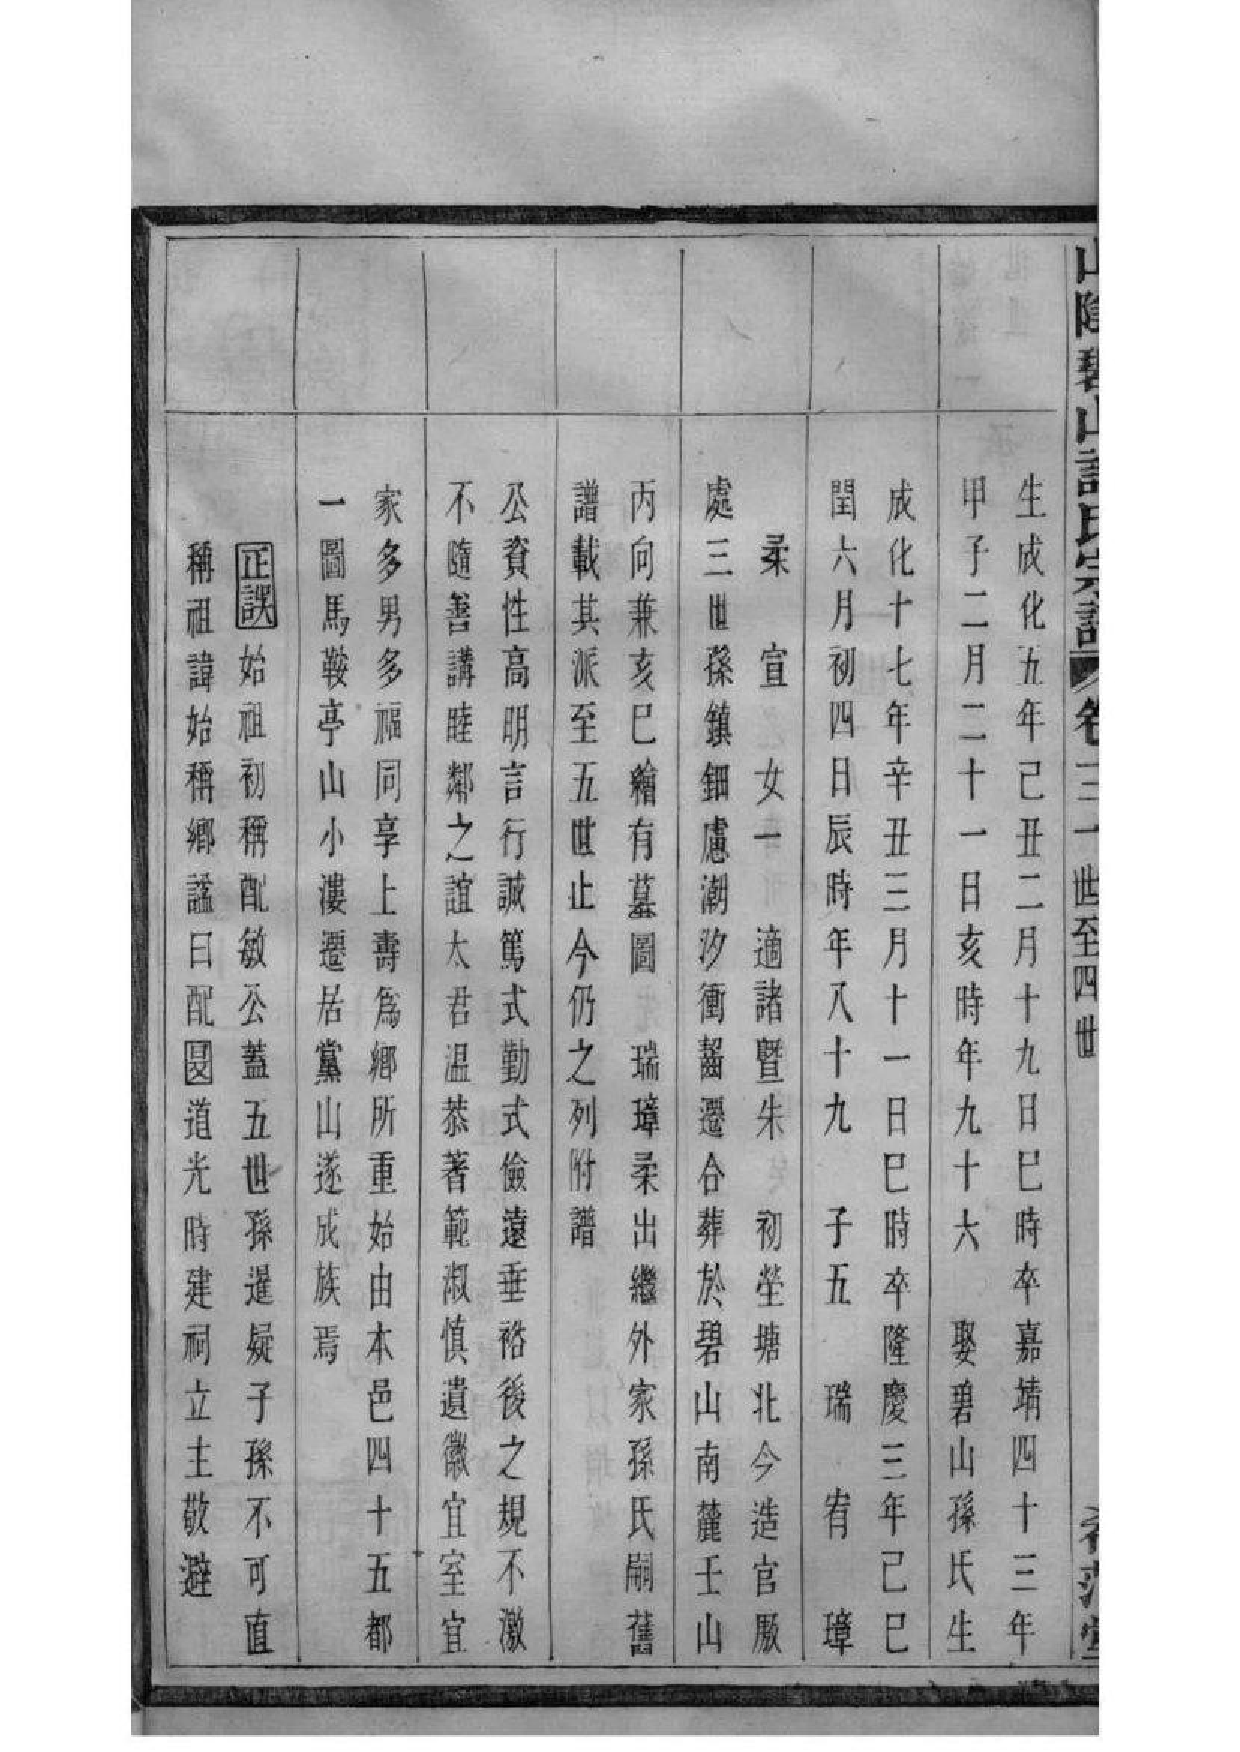 山陰碧山許氏宗譜 卷三 一世至四世
生成化五年己丑二月十九日巳時卒嘉靖四十三年
甲子二月二十一日亥時年九十六 娶碧山孫氏生
成化十七年辛丑三月十一日巳時卒隆慶三年己巳
閏六月初四日辰時年八十九 子五 瑞 宥 璋
柔 宣 女一 適諸暨朱 初塋塘北今造官廠
處三世孫鎮鈿慮潮汐衝齧遷合葬於碧山南麓壬山
丙向兼亥巳繪有墓圖 瑞璋柔出繼外家孫氏嗣舊
譜載其派至五世止今仍之列附譜
公資性高明言行誠篤式勤式儉遠垂裕後之規不激
不隨善講睦鄰之誼太君温恭著範淑慎遺徽宜室宜
家多男多福同享上壽爲鄉所重始由本邑四十五都
一圖馬鞍亭山小漊遷居黨山遂成族焉
正誤始祖初稱配敏公蓋五世孫暹疑子孫不可直
稱祖諱始稱鄉謚曰配道光時建祠立主敬避